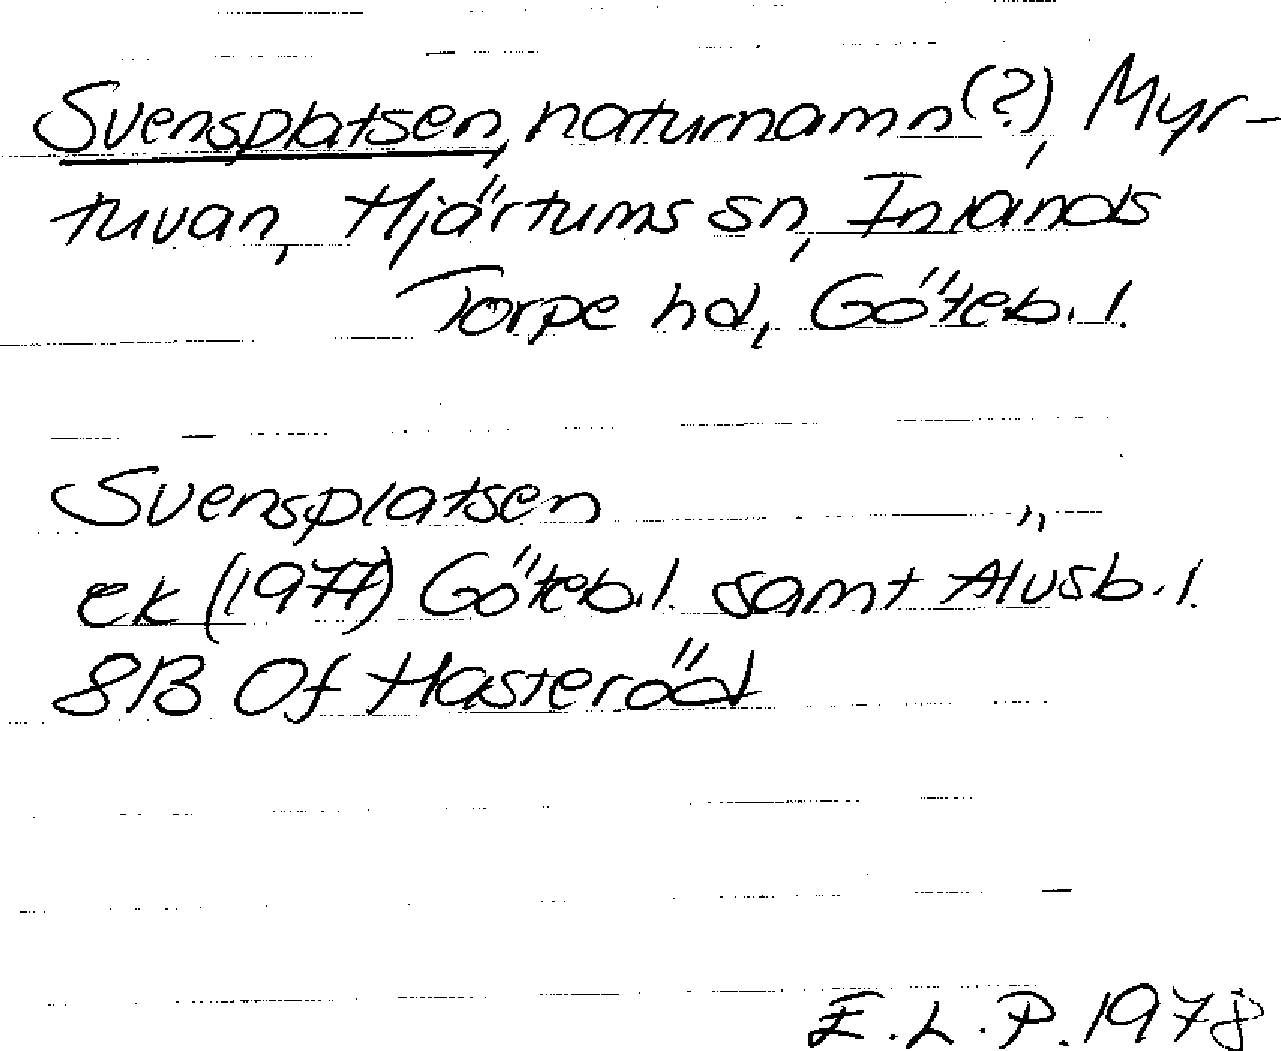 Svensplatsen, naturnamn(?), Myr-
tuvan, Hjärtums sn, Inlands
Torpe hd, Göteb. l.
Svensplatsen "
ek (1977) Göteb. l. samt Älvsb. l.
8B 0f Hasteröd
E. L. P. 1978